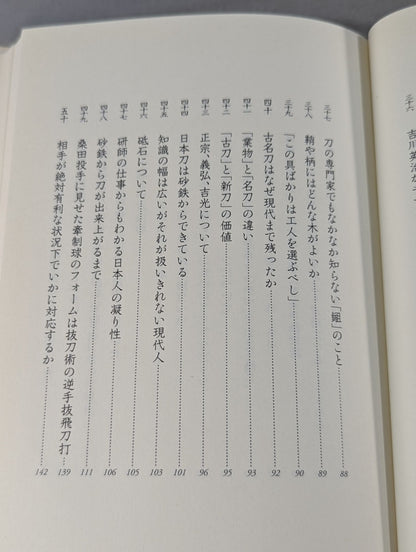 三十六 吉川英治が
三十七 刀の専門家でもなかなか知らない「鎺」のこと 88
三十八 鞘や柄にはどんな木がよいか 89
三十九 「この具ばかりは工人を選ぶべし」 90
四十 古名刀はなぜ現代まで残ったか 92
四十一 「業物」と「名刀」の違い 93
四十二 「古刀」と「新刀」の価値 95
四十三 正宗、義弘、吉光について 96
四十四 日本刀は砂鉄からできている 101
四十五 知識の幅は広いがそれが扱いきれない現代人 103
四十六 砥石について 105
四十七 研師の仕事からもわかる日本人の凝り性 106
四十八 砂鉄から刀が出来上がるまで 108
四十九 桑田投手に見せた牽制球のフォームは抜刀術の逆手抜飛刀打 111
五十 相手が絶対有利な状況下でいかに対応するか 139
142